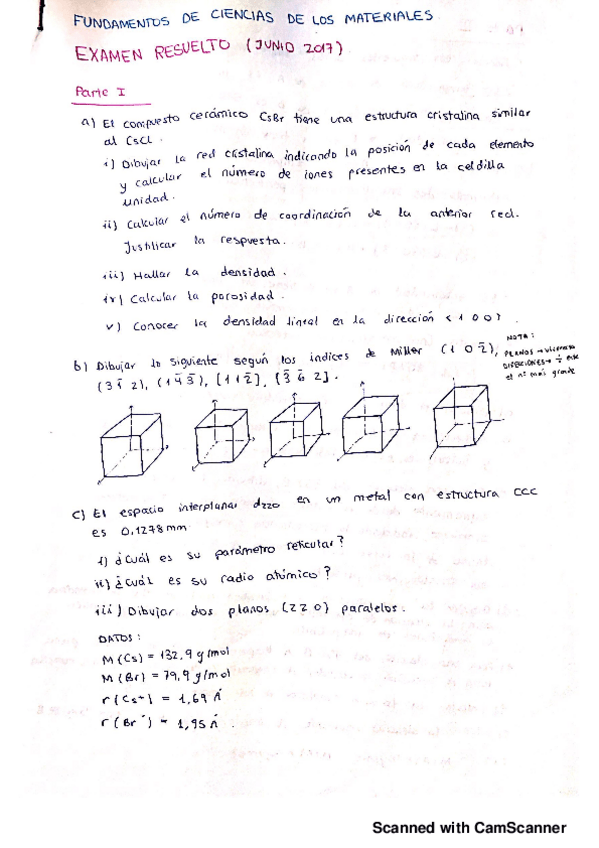 FUNDAMENTOS DE CIENCIAS DE LOS MATERIALES
EXAMEN RESUELTO (JUNIO 2017)
Parte I
a) El compuesto cerámico CsBr tiene una estructura cristalina similar
al CsCl.
i) Dibujar la red cristalina indicando la posición de cada elemento
y calcular el número de iones presentes en la celdilla
unidad.
ii) Calcular el número de coordinación de la anterior red.
Justificar la respuesta.
iii) Hallar la densidad.
iv) Calcular la porosidad.
v) Conocer la densidad lineal en la dirección <100>.
NOTA:
b) Dibujar lo siguiente según los indices de Miller (1 0 2̄),
PLANOS → 
DIRECCIONES →
el nº más grande
(3 1̄ 2), (1 4̄ 3̄), [1 1 2̄], [3̄ 6 2].
c) El espacio interplanar d220 en un metal con estructura CCC
es 0,1278 mm
i) ¿Cuál es su parámetro reticular?
ii) ¿Cuál es su radio atómico?
iii) Dibujar dos planos (220) paralelos.
DATOS:
M(Cs) = 132,9 g/mol
M(Br) = 79,9 g/mol
r(Cs+) = 1,69 Å
r(Br-) = 1,95 Å.
Scanned with CamScanner